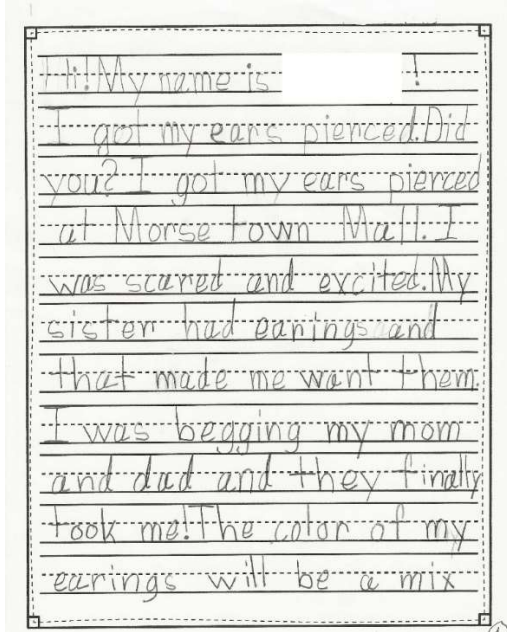 Hi! My name is !
I got my ears pierced. Did
you? I got my ears pierced
at Morse town Mall. I
was scared and excited. My
sister had earings and
that made me want them.
I was begging my mom
and dad and they finally
took me! The color of my
earings will be a mix